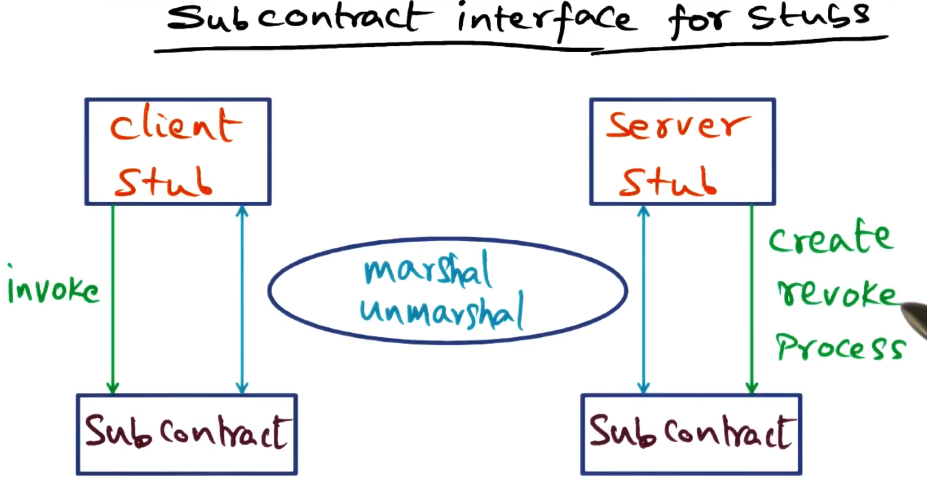 Subcontract interface for stubs
client
stub
Server
stub
invoke
marshal
unmarshal
create
revoke
process
Subcontract
Subcontract